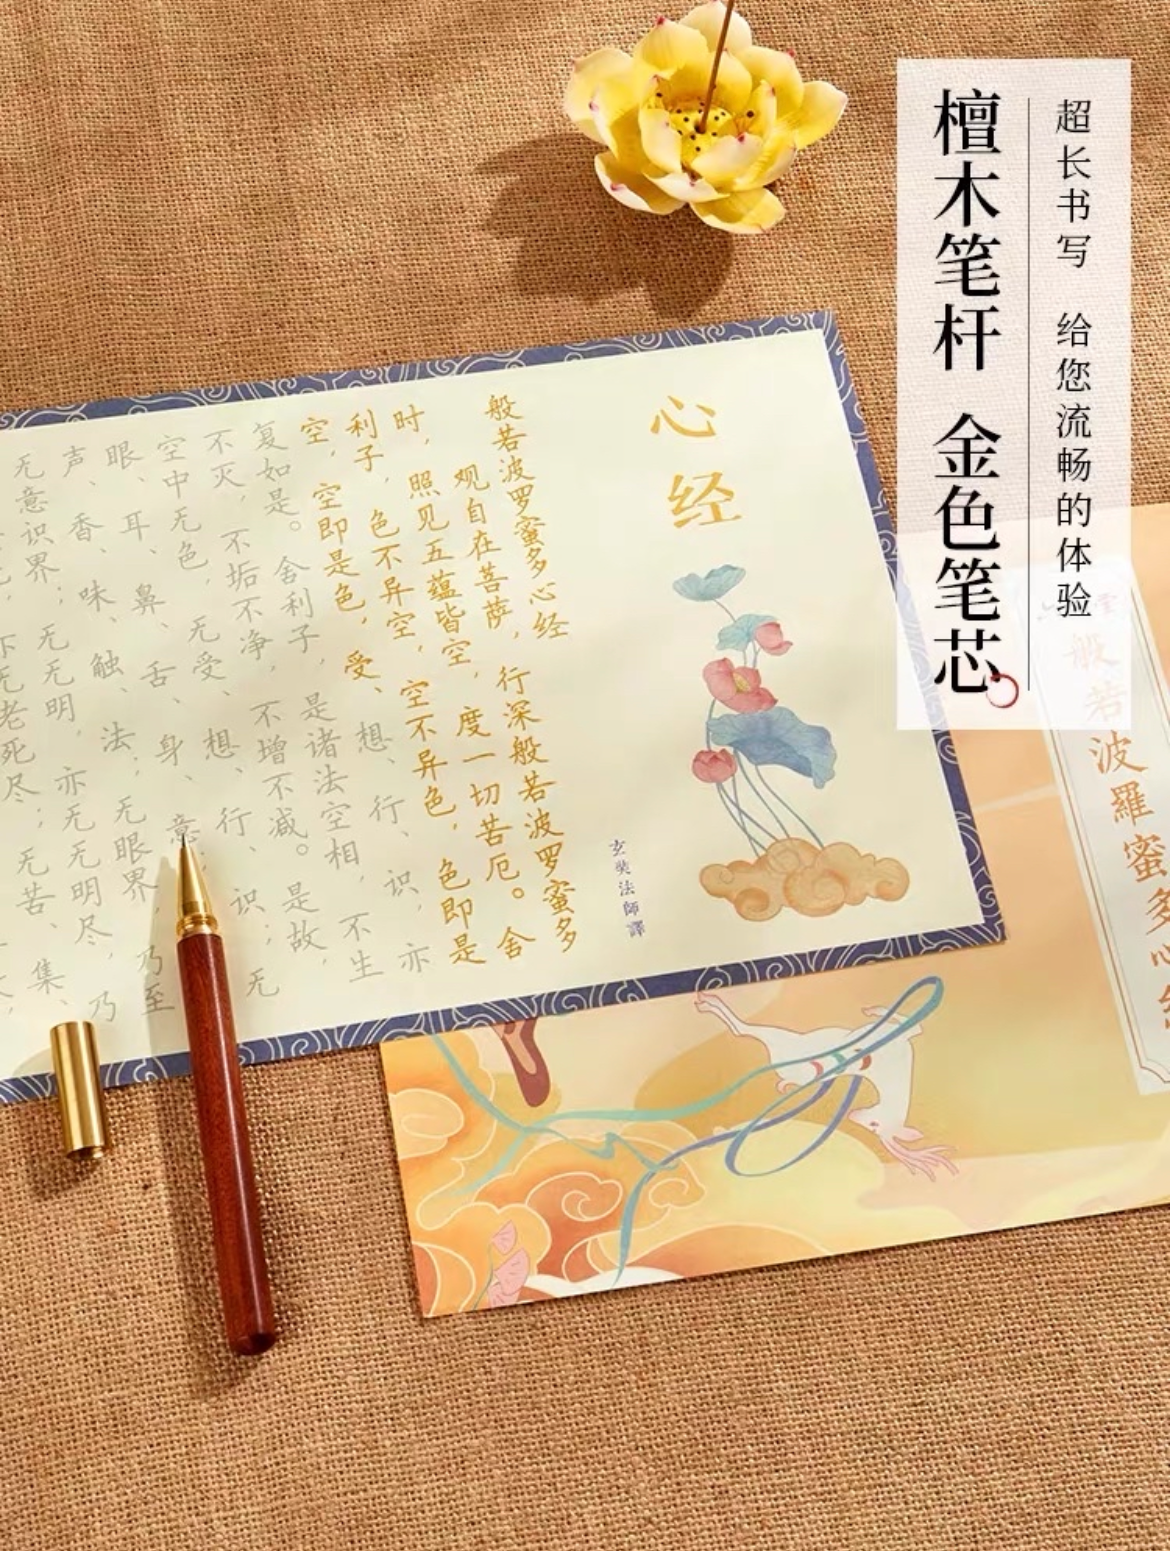 超长书写 给您流畅的体验
檀木笔杆 金色笔芯
心经
玄奘法師譯
般若波罗蜜多心经
观自在菩萨，行深般若波罗蜜多
时，照见五蕴皆空，度一切苦厄。舍
利子，色不异空，空不异色，色即是
空，空即是色，受、想、行、识，亦
复如是。舍利子，是诸法空相，不生
不灭，不垢不净，不增不减。是故，
空中无色，无受、想、行、识；无
眼、耳、鼻、舌、身、意；
声、香、味、触、法；无眼界，乃至
无意识界；无无明，亦无无明尽，乃
无老死尽；无苦、集、
般若波羅蜜多心